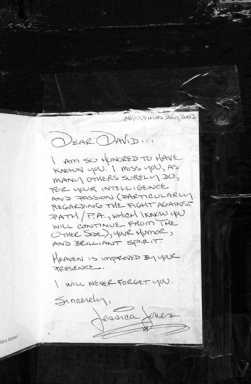 Dear David...
I am so honored to have
known you. I miss you, as
many others surely do,
for your intelligence
and passion (particularly
regarding the fight against
Path / P.A., which I know you
will continue from the
other side), your humor,
and brilliant spirit.
Heaven is improved by your
presence.
I will never forget you.
Sincerely,
Jessica Jones